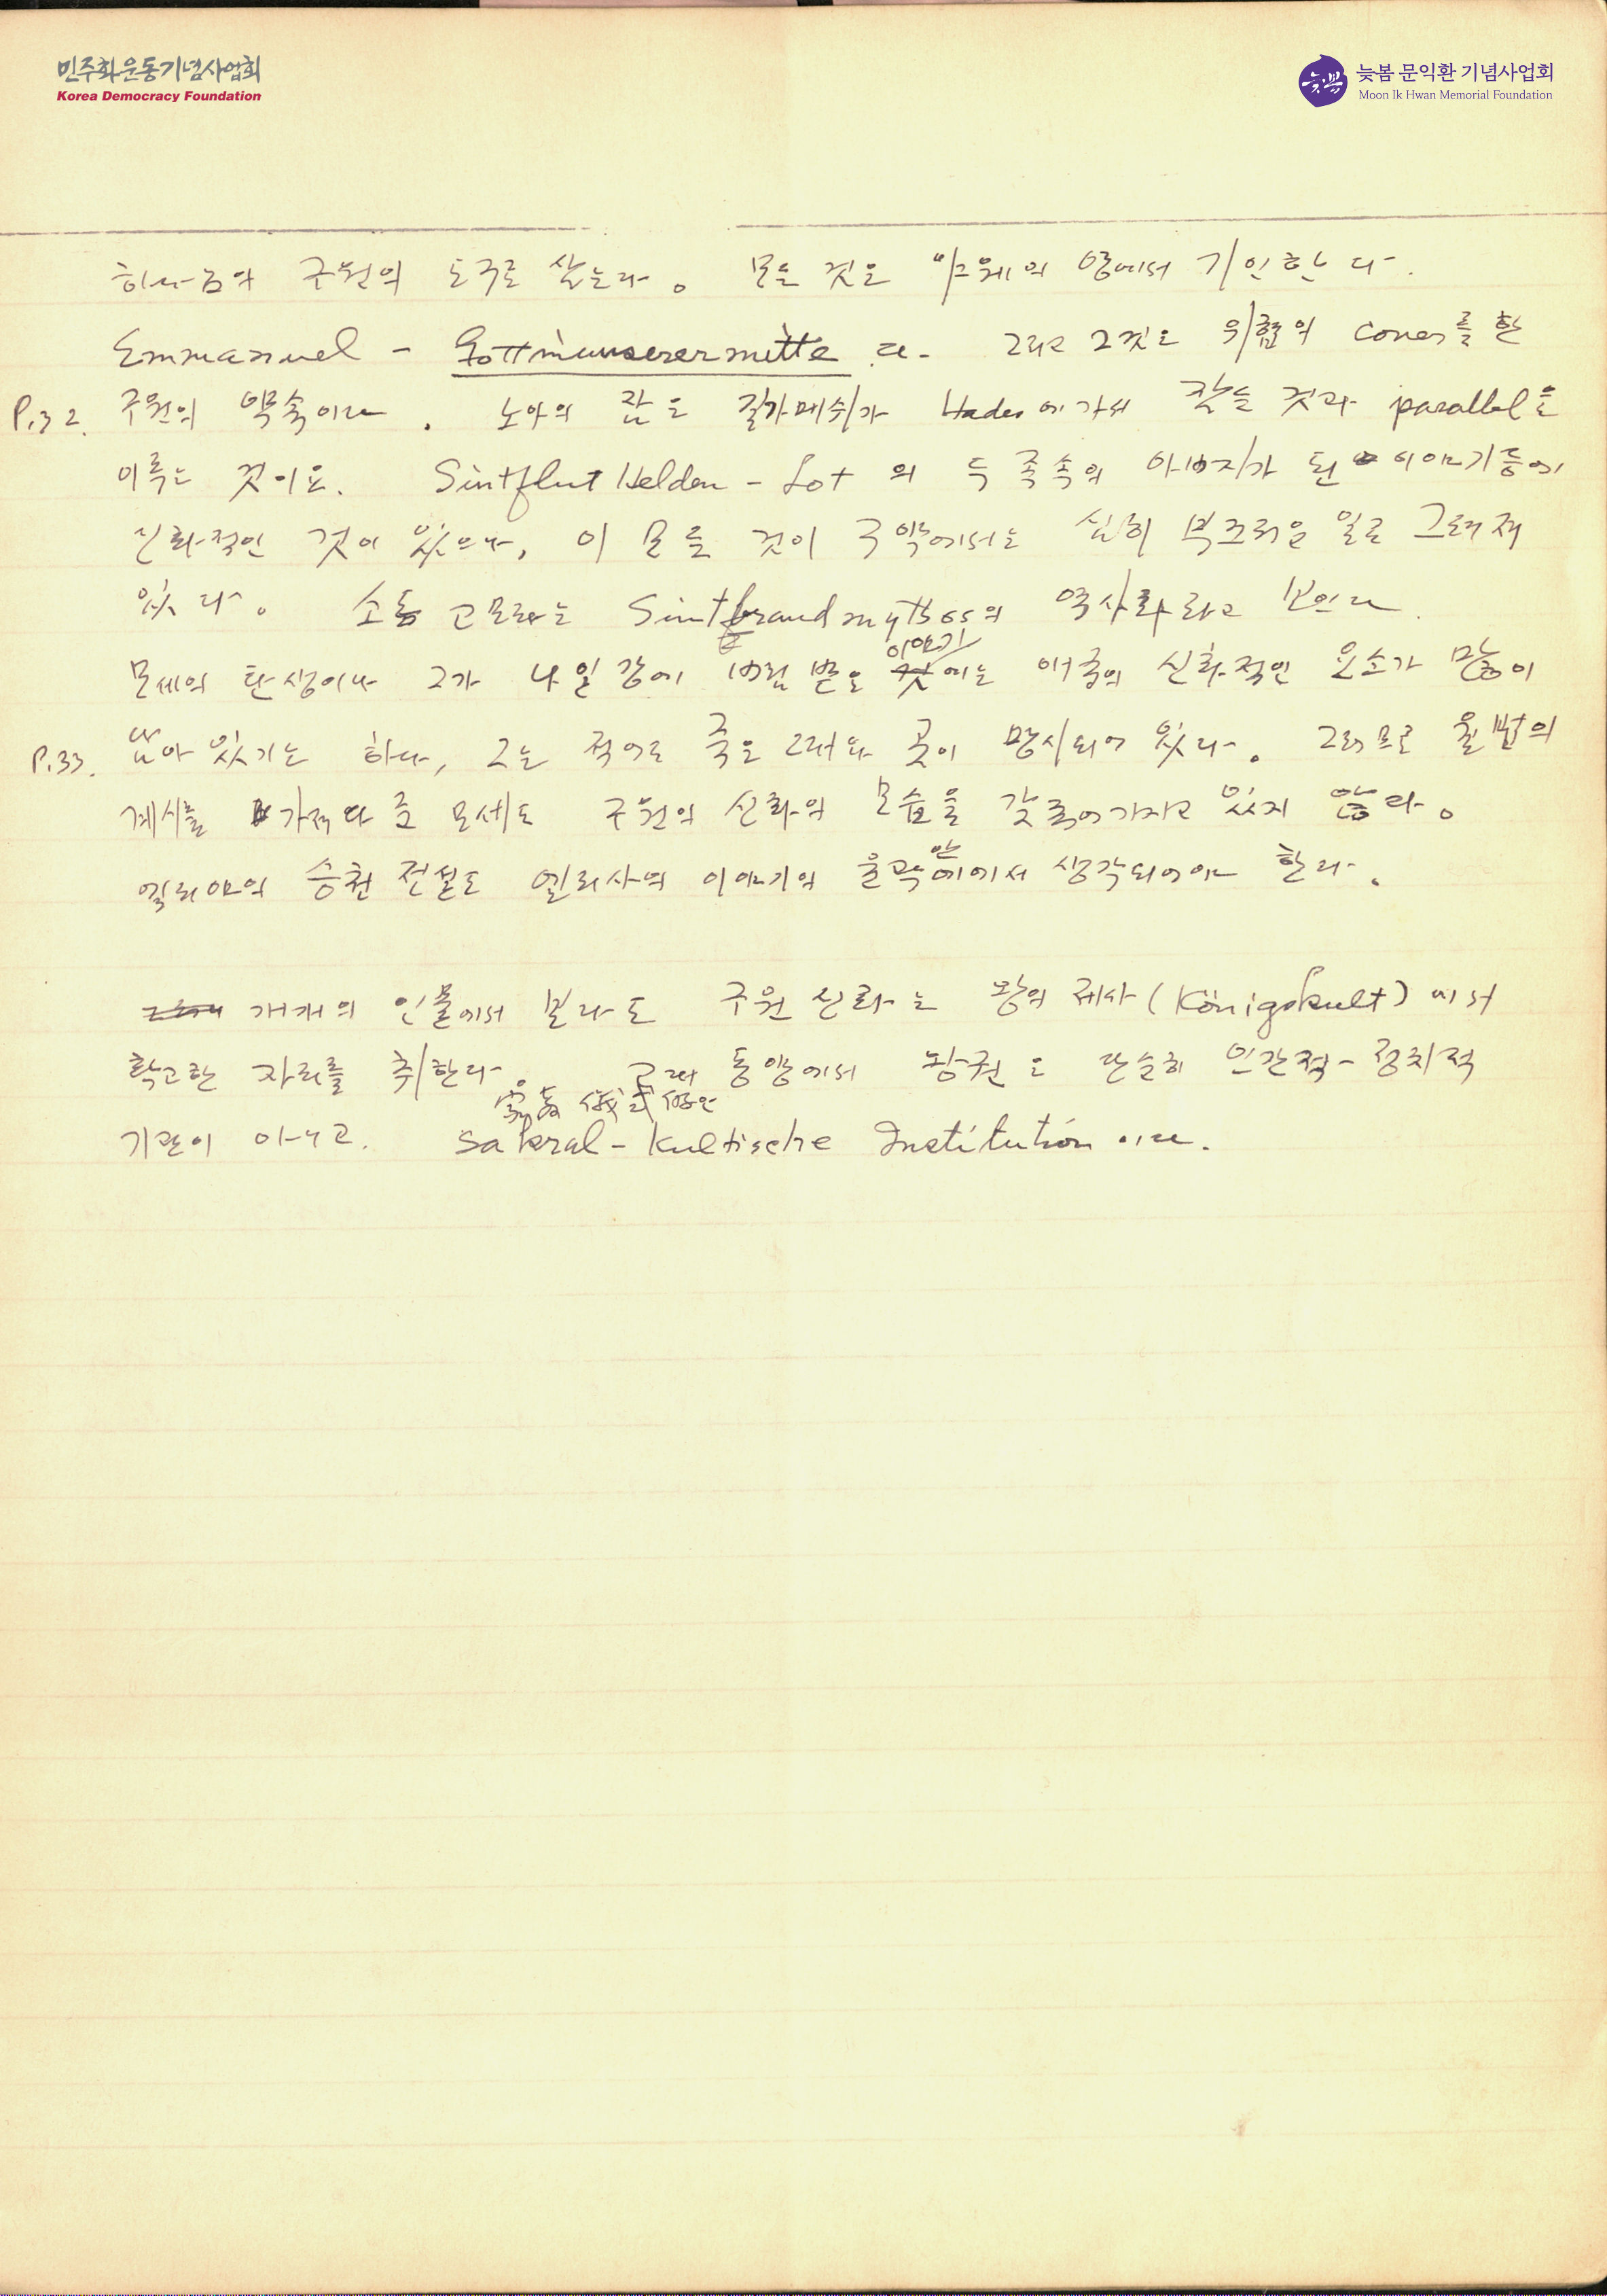 민주화운동기념사업회
Korea Democracy Foundation
늦봄 문익환 기념사업회
Moon Ik Hwan Memorial Foundation
하나님의 구원의 도구로 삼는다。 모든 것은 야웨의 영에서 기인한다.
Emmanuel - Gottinunserermitte 다- 그리고 그것은 위협의 cover를 한
P.32. 구원의 약속이다. 노아의 잠은 길가메쉬가 Hades에 가서 잠든 것과 parallel을
이루는 것이요. Sintflut Helden - Lot 의 두 족속의 아버지가 된 이야기 등에
신화적인 것이 있으나, 이 모든 것이 구약에서는 심히 부끄러운 일로 그려져
있다。 소돔 고모라는 Sintbrandmythos의 역사화라고 보인다.
모세의 탄생이나 그가 나일강에 버림 받은 이야기에는 애굽의 신화적인 요소가 많이
P.33. 남아 있기는 하나, 그는 적어도 죽은 그때와 곳이 명시되어 있다. 그러므로 율법의
계시를 가져다 준 모세도 구원의 신화의 모습을 갖추어가지고 있지 않다。
엘리야의 승천 전설도 엘리사의 이야기의 윤곽 안에서 생각되어야 한다.
개개의 인물에서 보다도 구원 신화는 왕의 제사 (Königskult) 에서
확고한 자리를 취한다. 고대 동양에서 왕권은 단순히 인간적 - 정치적
儀式的인
기관이 아니고. Sakral - kultische Institution 이다.